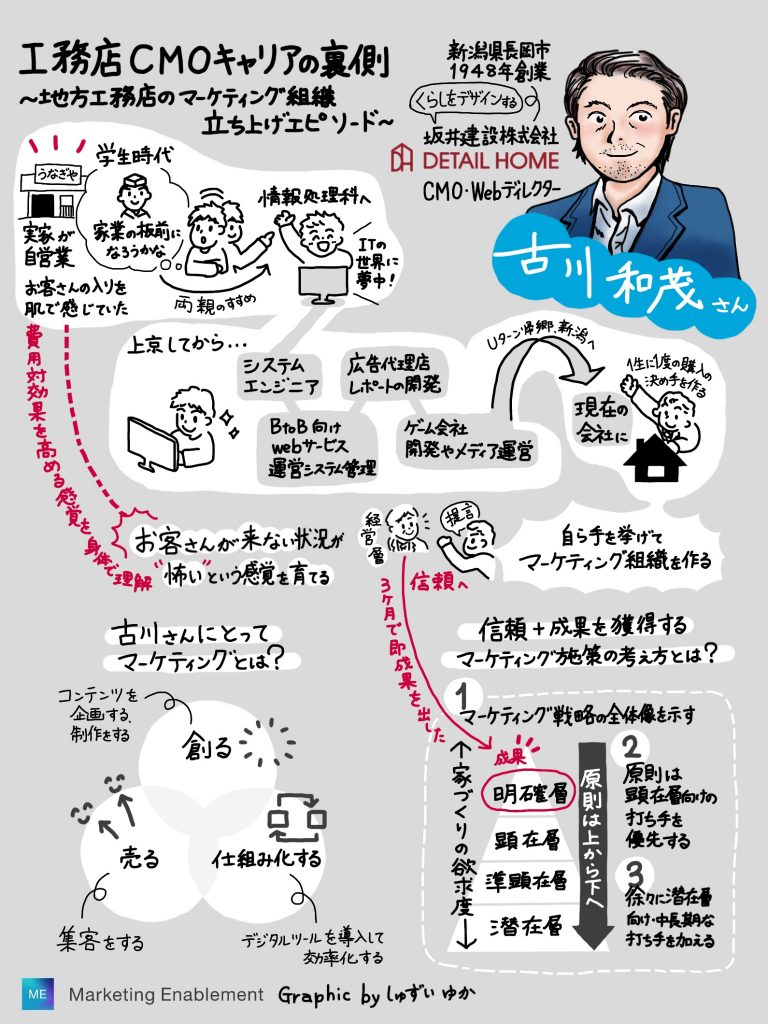 工務店CMOキャリアの裏側
～地方工務店のマーケティング組織
立ち上げエピソード～
新潟県長岡市
1948年創業
くらしをデザインする
坂井建設株式会社
DETAIL HOME
CMO・Webディレクター
古川 和茂さん
うなぎや
実家が
自営業
お客さんの入りを
肌で感じていた
学生時代
家業の板前に
なろうかな
両親のすすめ
情報処理科へ
ITの
世界に
夢中!
上京してから…
システム
エンジニア
BtoB向け
webサービス
運営システム管理
広告代理店
レポートの開発
ゲーム会社
開発やメディア運営
Uターン帰郷、新潟へ
現在の
会社に
1生に1度の購入の
決め手を作る
費用対効果を高める感覚を身体で理解
お客さんが来ない状況が
"怖い"という感覚を育てる
経営層
提言
信頼へ
自ら手を挙げて
マーケティング組織を作る
3ヶ月で即成果を出した
古川さんにとって
マーケティングとは?
コンテンツを
企画する、
制作をする
創る
売る
仕組み化する
集客をする
デジタルツールを導入して
効率化する
信頼+成果を獲得する
マーケティング施策の考え方とは?
1
マーケティング戦略の全体像を示す
家づくりの欲求度
成果
明確層
顕在層
準顕在層
潜在層
原則は上から下へ
2
原則は
顕在層向けの
打ち手を
優先する
3
徐々に潜在層
向け・中長期な
打ち手を加える
ME Marketing Enablement Graphic by しゅずい ゆか